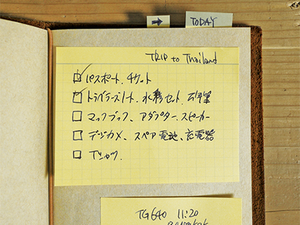 TODAY
TRIP to Thailand
パスポート、チケット
トラベラーズノート、水彩セット、万年筆
マックブック、アダプター、スピーカー
デージカメ、スペア電池、充電器
Tシャツ、
TG640 11:20
BANGKOK